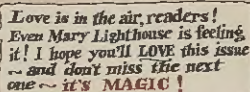 Love is in the air, readers!
Even Mary Lighthouse is feeling
it! I hope you'll LOVE this issue
~ and don't miss the next
one ~ it's MAGIC!